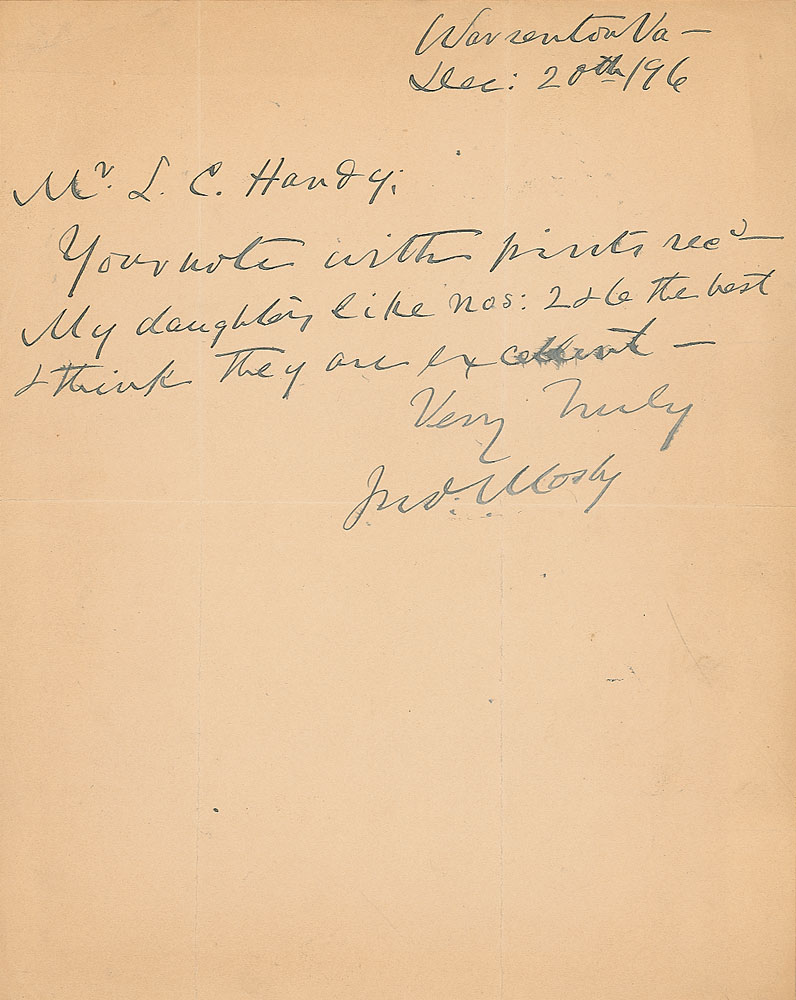 Warrenton Va —
Dec: 20th /96
Mr. L. C. Handy:
Your note with prints rec'd —
My daughters like nos: 2 & 6 the best
& think they are excellent —
Very Truly
Jno. S. Mosby